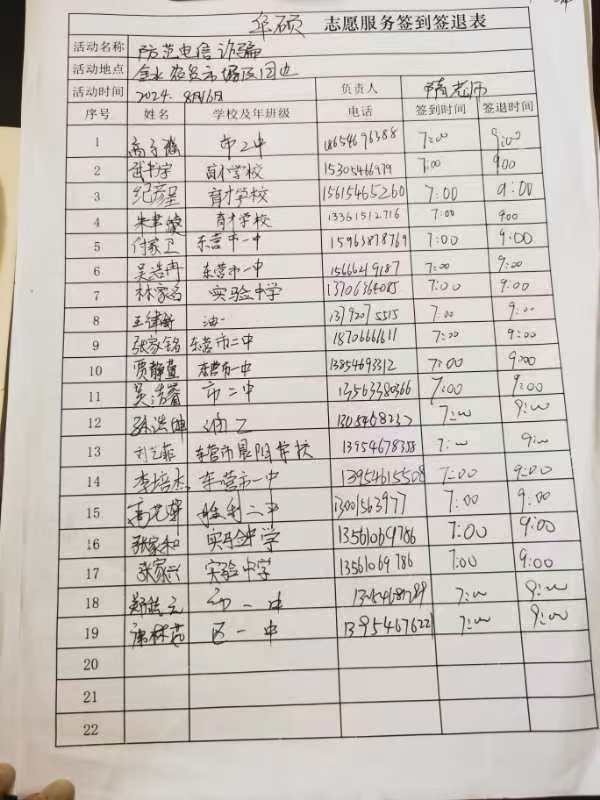 卓硕 志愿服务签到签退表
活动名称 防范电信诈骗
活动地点
活动时间 2024. 8月16日 负责人 老师
序号 姓名 学校及年班级 电话 签到时间 签退时间
1 市二中 18654696388 7:00 9:00
2 武书宇 育才学校 15305466979 7:00 9:00
3 纪彦呈 育才学校 15615465260 7:00 9:00
4 朱聿 育才学校 13361512716 7:00 900
5 付家卫 东营市一中 15963878769 7:00 9:00
6 吴浩冉 东营市一中 15666219187 7:00 9:00
7 林家名 实验中学 13706368085 7:00 9:00
8 王律 油一 13792075515 7:00 9:00
9 张家铭 东营市二中 18706661611 7:00 9:00
10 贾静萱 东营市一中 13854693312 7:00 9:00
11 吴浩睿 市二中 13563380366 7:00 9:00
12 孙浩坤 油二 7:00 9:00
13 刘艺菲 东营市晨阳学校 13954678358 7:00 9:00
14 李培杰 东营市一中 13954615508 7:00 9:00
15 胜利二中 13001563977 7:00 9:00
16 张家和 实验中学 13561069786 7:00 9:00
17 张家兴 实验中学 13561069786 7:00 9:00
18 郑皓元 市一中 7:00 9:00
19 唐林 区一中 13954676221 7:00 9:00
20
21
22